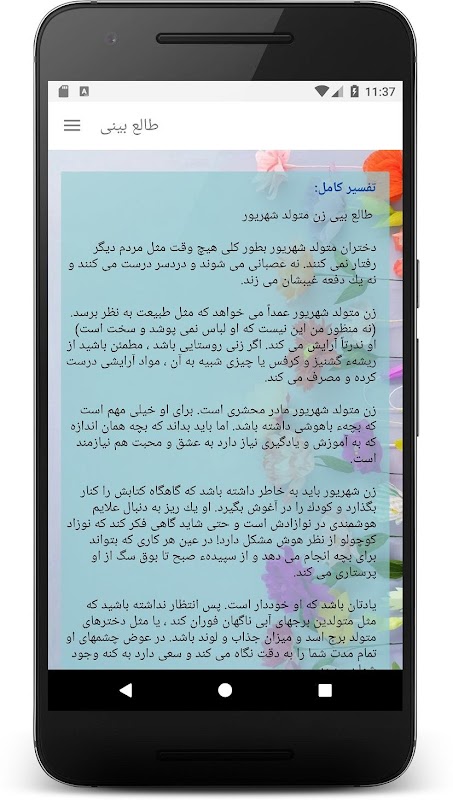 11:37
طالع بینی
تفسیر کامل:
طالع بیی زن متولد شهریور
دختران متولد شهریور بطور کلی هیچ وقت مثل مردم دیگر
رفتار نمی کنند. نه عصبانی می شوند و دردسر درست می کنند و
نه یك دفعه غیبشان می زند.
زن متولد شهریور عمداً می خواهد که مثل طبیعت به نظر برسد.
(نه منظور من این نیست که او لباس نمی پوشد و سخت است)
او ندرتاً آرایش می کند. اگر زنی روستایی باشد ، مطمئن باشید از
ریشهء گشنیز و کرفس یا چیزی شبیه به آن ، مواد آرایشی درست
کرده و مصرف می کند.
زن متولد شهریور مادر محشری است. برای او خیلی مهم است
که بچهء باهوشی داشته باشد. اما باید بداند که بچه همان اندازه
که به آموزش و یادگیری نیاز دارد به عشق و محبت هم نیازمند
است.
زن شهریور باید به خاطر داشته باشد که گاهگاه کتابش را کنار
بگذارد و کودك را در آغوش بگیرد. او یك ریز به دنبال علایم
هوشمندی در نوازادش است و حتی شاید گاهی فکر کند که نوزاد
کوچولو از نظر هوش مشکل دارد! در عین هر کاری که بتواند
برای بچه انجام می دهد و از سپیدهء صبح تا بوق سگ از او
پرستاری می کند.
یادتان باشد که او خوددار است. پس انتظار نداشته باشید که
مثل متولدین برجهای آبی ناگهان فوران کند ، یا مثل دخترهای
متولد برج اسد و میزان جذاب و لوند باشد. در عوض چشمهای او
تمام مدت شما را به دقت نگاه می کند و سعی دارد به کنه وجود